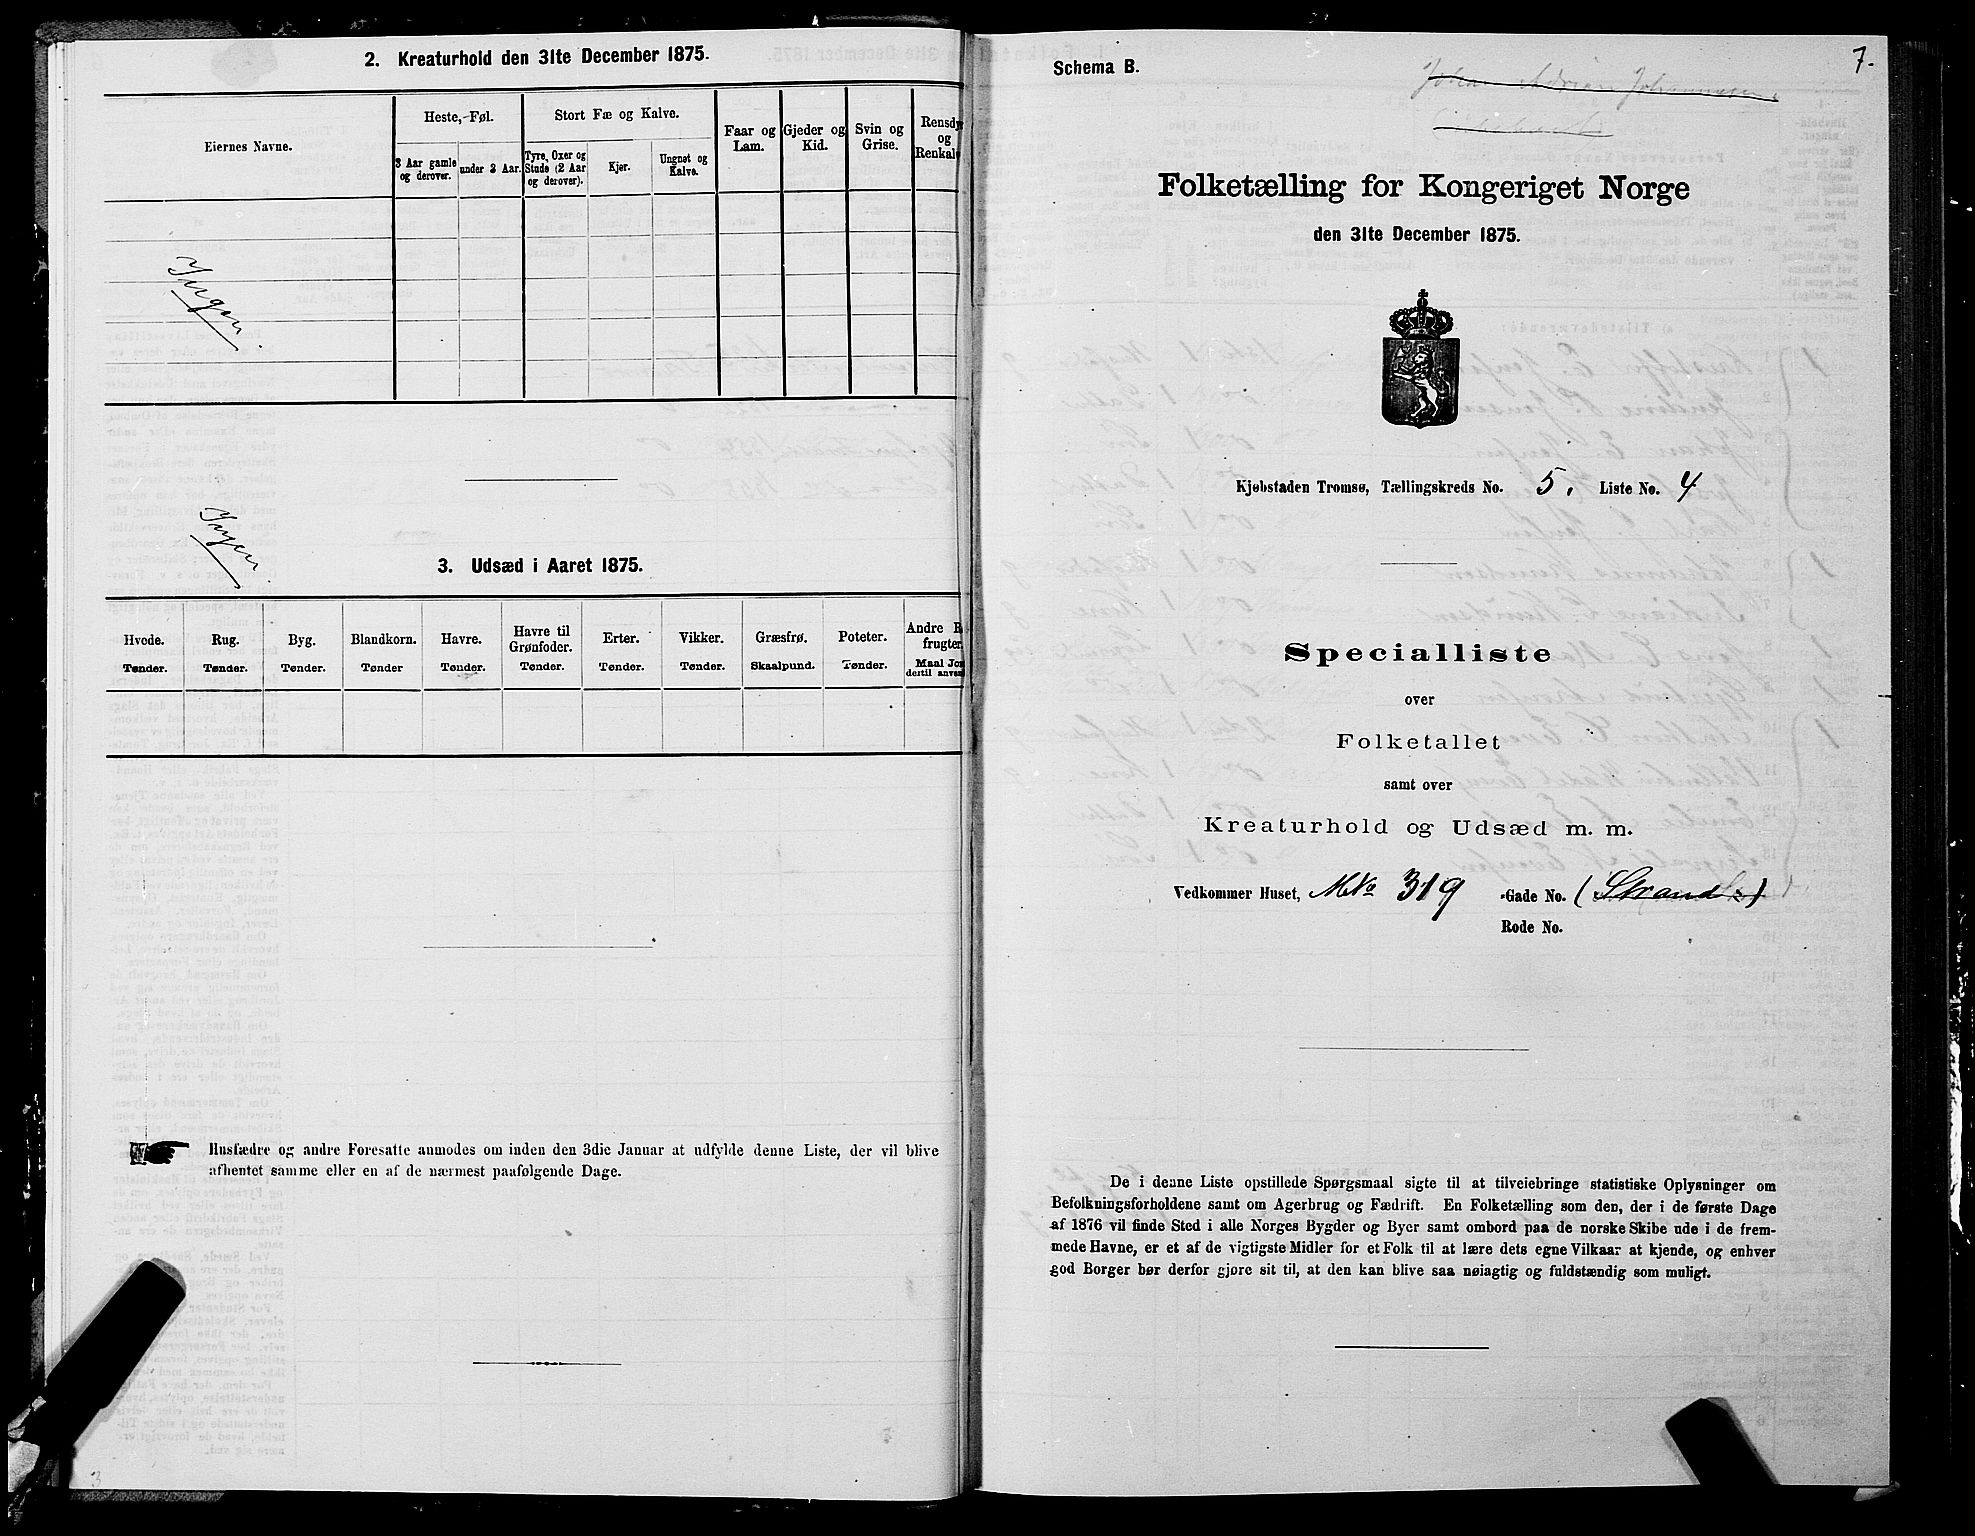 2. Kreaturhold den 31te December 1875.
Eiernes Navne.
Heste,-Føl.
Stort Fæ og Kalve.
Faar og
Lam.
Gjeder og
Kid.
Svin og
Grise.
Rensdy
og
Renkal
3 Aar gamle
og derover.
under 3 Aar.
Tyre, Oxer og
Stude (2 Aar
og derover).
Kjør.
Ungnøt og
Kalve.
Ingen
Ingen
3. Udsæd i Aaret 1875.
Hvede.
Tønder.
Rug.
Tønder.
Byg.
Tønder.
Blandkorn.
Tønder
Havre.
Tønder.
Havre til
Grønfoder.
Tønder.
Erter.
Tønder.
Vikker.
Tønder.
Græsfrø.
Skaalpund.
Poteter.
Tønder.
Andre R
frugter.
Maal Jor
dertil anven
Husfædre og andre Foresatte anmodes om inden den 3die Januar at udfylde denne Liste, der vil blive
afhentet samme eller en af de nærmest paafølgende Dage.
3
7.
Schema B.
Johan Adrian Johannesen
Folketælling for Kongeriget Norge
den 31te December 1875.
Kjøbstaden Tromsø, Tællingskreds No. 5. Liste No. 4
Specialliste
over
Folketallet
samt over
Kreaturhold og Udsæd m. m.
Vedkommer Huset, MNo 319 -Gade No. (Strand)
Rode No.
De i denne Liste opstillede Spørgsmaal sigte til at tilveiebringe statistiske Oplysninger om
Befolkningsforholdene samt om Agerbrug og Fædrift. En Folketælling som den, der i de første Dage
af 1876 vil finde Sted i alle Norges Bygder og Byer samt ombord paa de norske Skibe ude i de frem-
mede Havne, er et af de vigtigste Midler for et Folk til at lære dets egne Vilkaar at kjende, og enhver
god Borger bør derfor gjøre sit til, at den kan blive saa nøiagtig og fuldstændig som muligt.